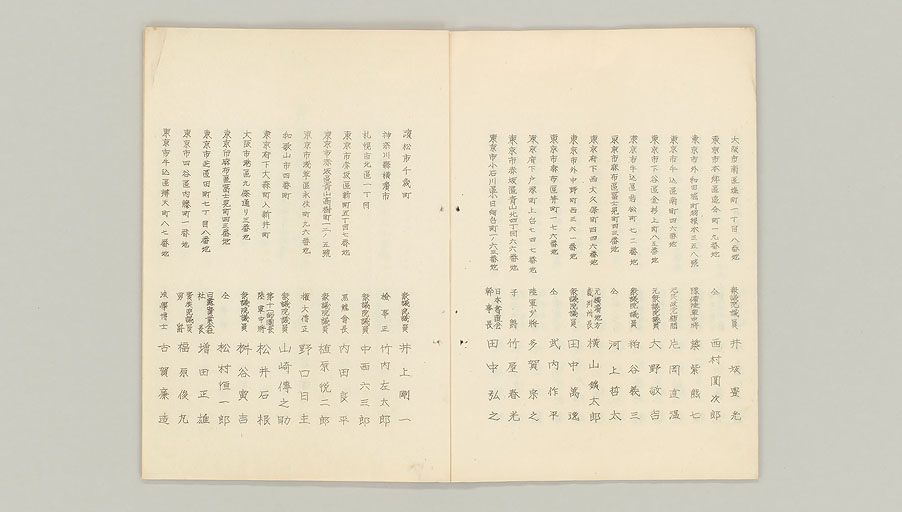 大阪市南區 町一丁目八番地 衆議院議員 井坂豊光
東京市本郷區 町一九番地 仝 西村圓次郎
東京市外和田堀町 三五八號 陸軍中將 筑紫熊七
東京市牛込區南町四六番地 片岡直温
東京市下谷區金杉上町八五番地 元衆議院議員 大野敬吉
東京市牛込區若松町七二番地 衆議院議員 粕谷義三
東京市麻布區富士見町四三番地 仝 河上哲太
東京府下西大久保町四四六番地 元横濱地方裁判所長 横山鑛太郎
東京市外中野町西三六一番地 衆議院議員 田中萬逸
東京市麻布區 町一七六番地 仝 武内作平
東京府下戸塚町上台七四七番地 陸軍少將 多賀宗之
東京市赤坂區青山北四丁目六六番地 子爵 竹屋春光
東京市小石川區小日向台町一ノ六三番地 日本 會幹事長 田中弘之
濱松市千歳町 衆議院議員 井上剛一
神奈川縣横濱市 檢事正 竹内左太郎
札幌市北區一丁目 衆議院議員 中西六三郎
東京市赤坂區新町五丁目七番地 黒龍會長 内田良平
東京市赤坂區青山高樹町一二ノ五號 衆議院議員 植原悦二郎
東京市浅草區永住町九六番地 權大僧正 野口日主
和歌山市四番町 衆議院議員 山崎傳之助
東京府下大森町八新井町 第十一師團長陸軍中將 松井石根
大阪市港區九條通り三番地 衆議院議員 桝谷寅吉
東京市麻布區富士見町四三番地 仝 松村恒一郎
東京市芝區田町七丁目八番地 會社社長 増田正雄
東京市四谷區内藤町一番地 貴族院議員男爵 福原俊丸
東京市牛込區辨天町八七番地 法學博士 古賀廉造